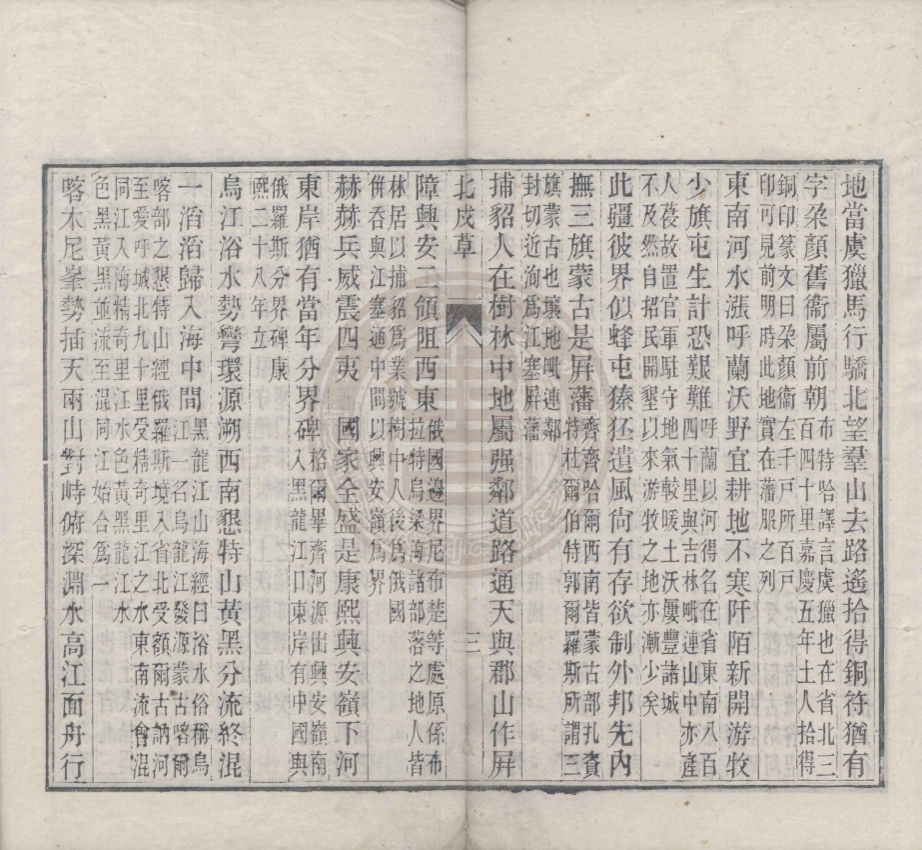 地當虞獵馬行驕北望羣山去路遙拾得銅符猶有
字朶顏舊衞屬前朝布特哈譯言虞獵也在省北三
百四十里嘉慶五年土人拾得
銅印篆文曰朶顏衞左千戸所百戸
印可見前明時此地實在藩服之列
東南河水漲呼蘭沃野宜耕地不寒阡陌新開游牧
少旗屯生計恐艱難呼蘭以河得名在省東南八百
四十里與吉林毗連山中亦產
人葠故置官軍駐守地氣較暖土沃屢豐諸城
不及然自招民開墾以來游牧之地亦漸少矣
此疆彼界似蜂屯獉狉遺風尙有存欲制外邦先內
撫三旗蒙古是屏藩齊齊哈爾西南皆蒙古部扎賚
特杜爾伯特郭爾羅斯所謂三
旗蒙古也壤地毗連鄰
封切近洵爲江塞屏藩
捕貂人在樹林中地屬强鄰道路通天與郡山作屛
北戍草
三
障興安二領阻西東俄國邊界尼布楚等處原係布
拉特烏梁海諸部落之地人皆
林居以捕貂爲業號樹中人後爲俄國
併吞與江塞通中間以興安嶺爲界
赫赫兵威震四夷 國家全盛是康熙興安嶺下河
東岸猶有當年分界碑格爾畢齊河源出興安嶺南
入黑龍江口東岸有中國與
俄羅斯分界碑康
熙二十八年立
烏江浴水勢彎環源溯西南懇特山黃黑分流終混
一滔滔歸入海中間黑龍江山海經曰浴水俗稱烏
江一名烏龍江發源蒙古喀爾
喀部之懇特山經俄羅斯境入省北受額爾古訥河
至愛呼城北九十里受精奇里江之水東南流會混
同江入海精奇里江水色黃黑龍江水
色黑黃黑並流至混同江始合爲一
喀木尼峯勢插天兩山對峙俯深淵水高江面舟行